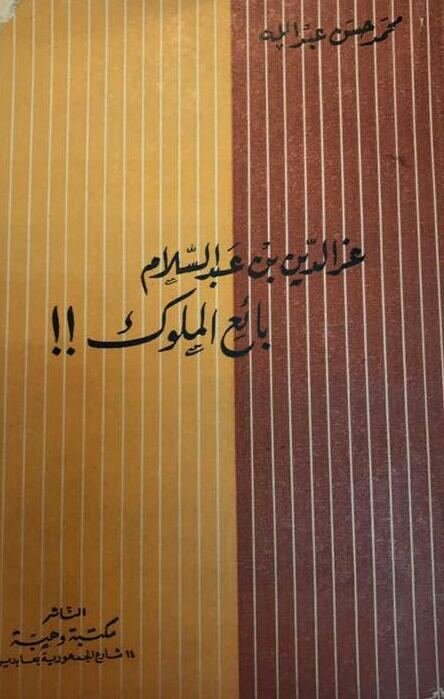 محمد حسن عبد الله
عز الدين بن عبد السلام
بائع الملوك !!
الناشر
مكتبة وهبة
١٤ شارع الجمهورية بعابدين